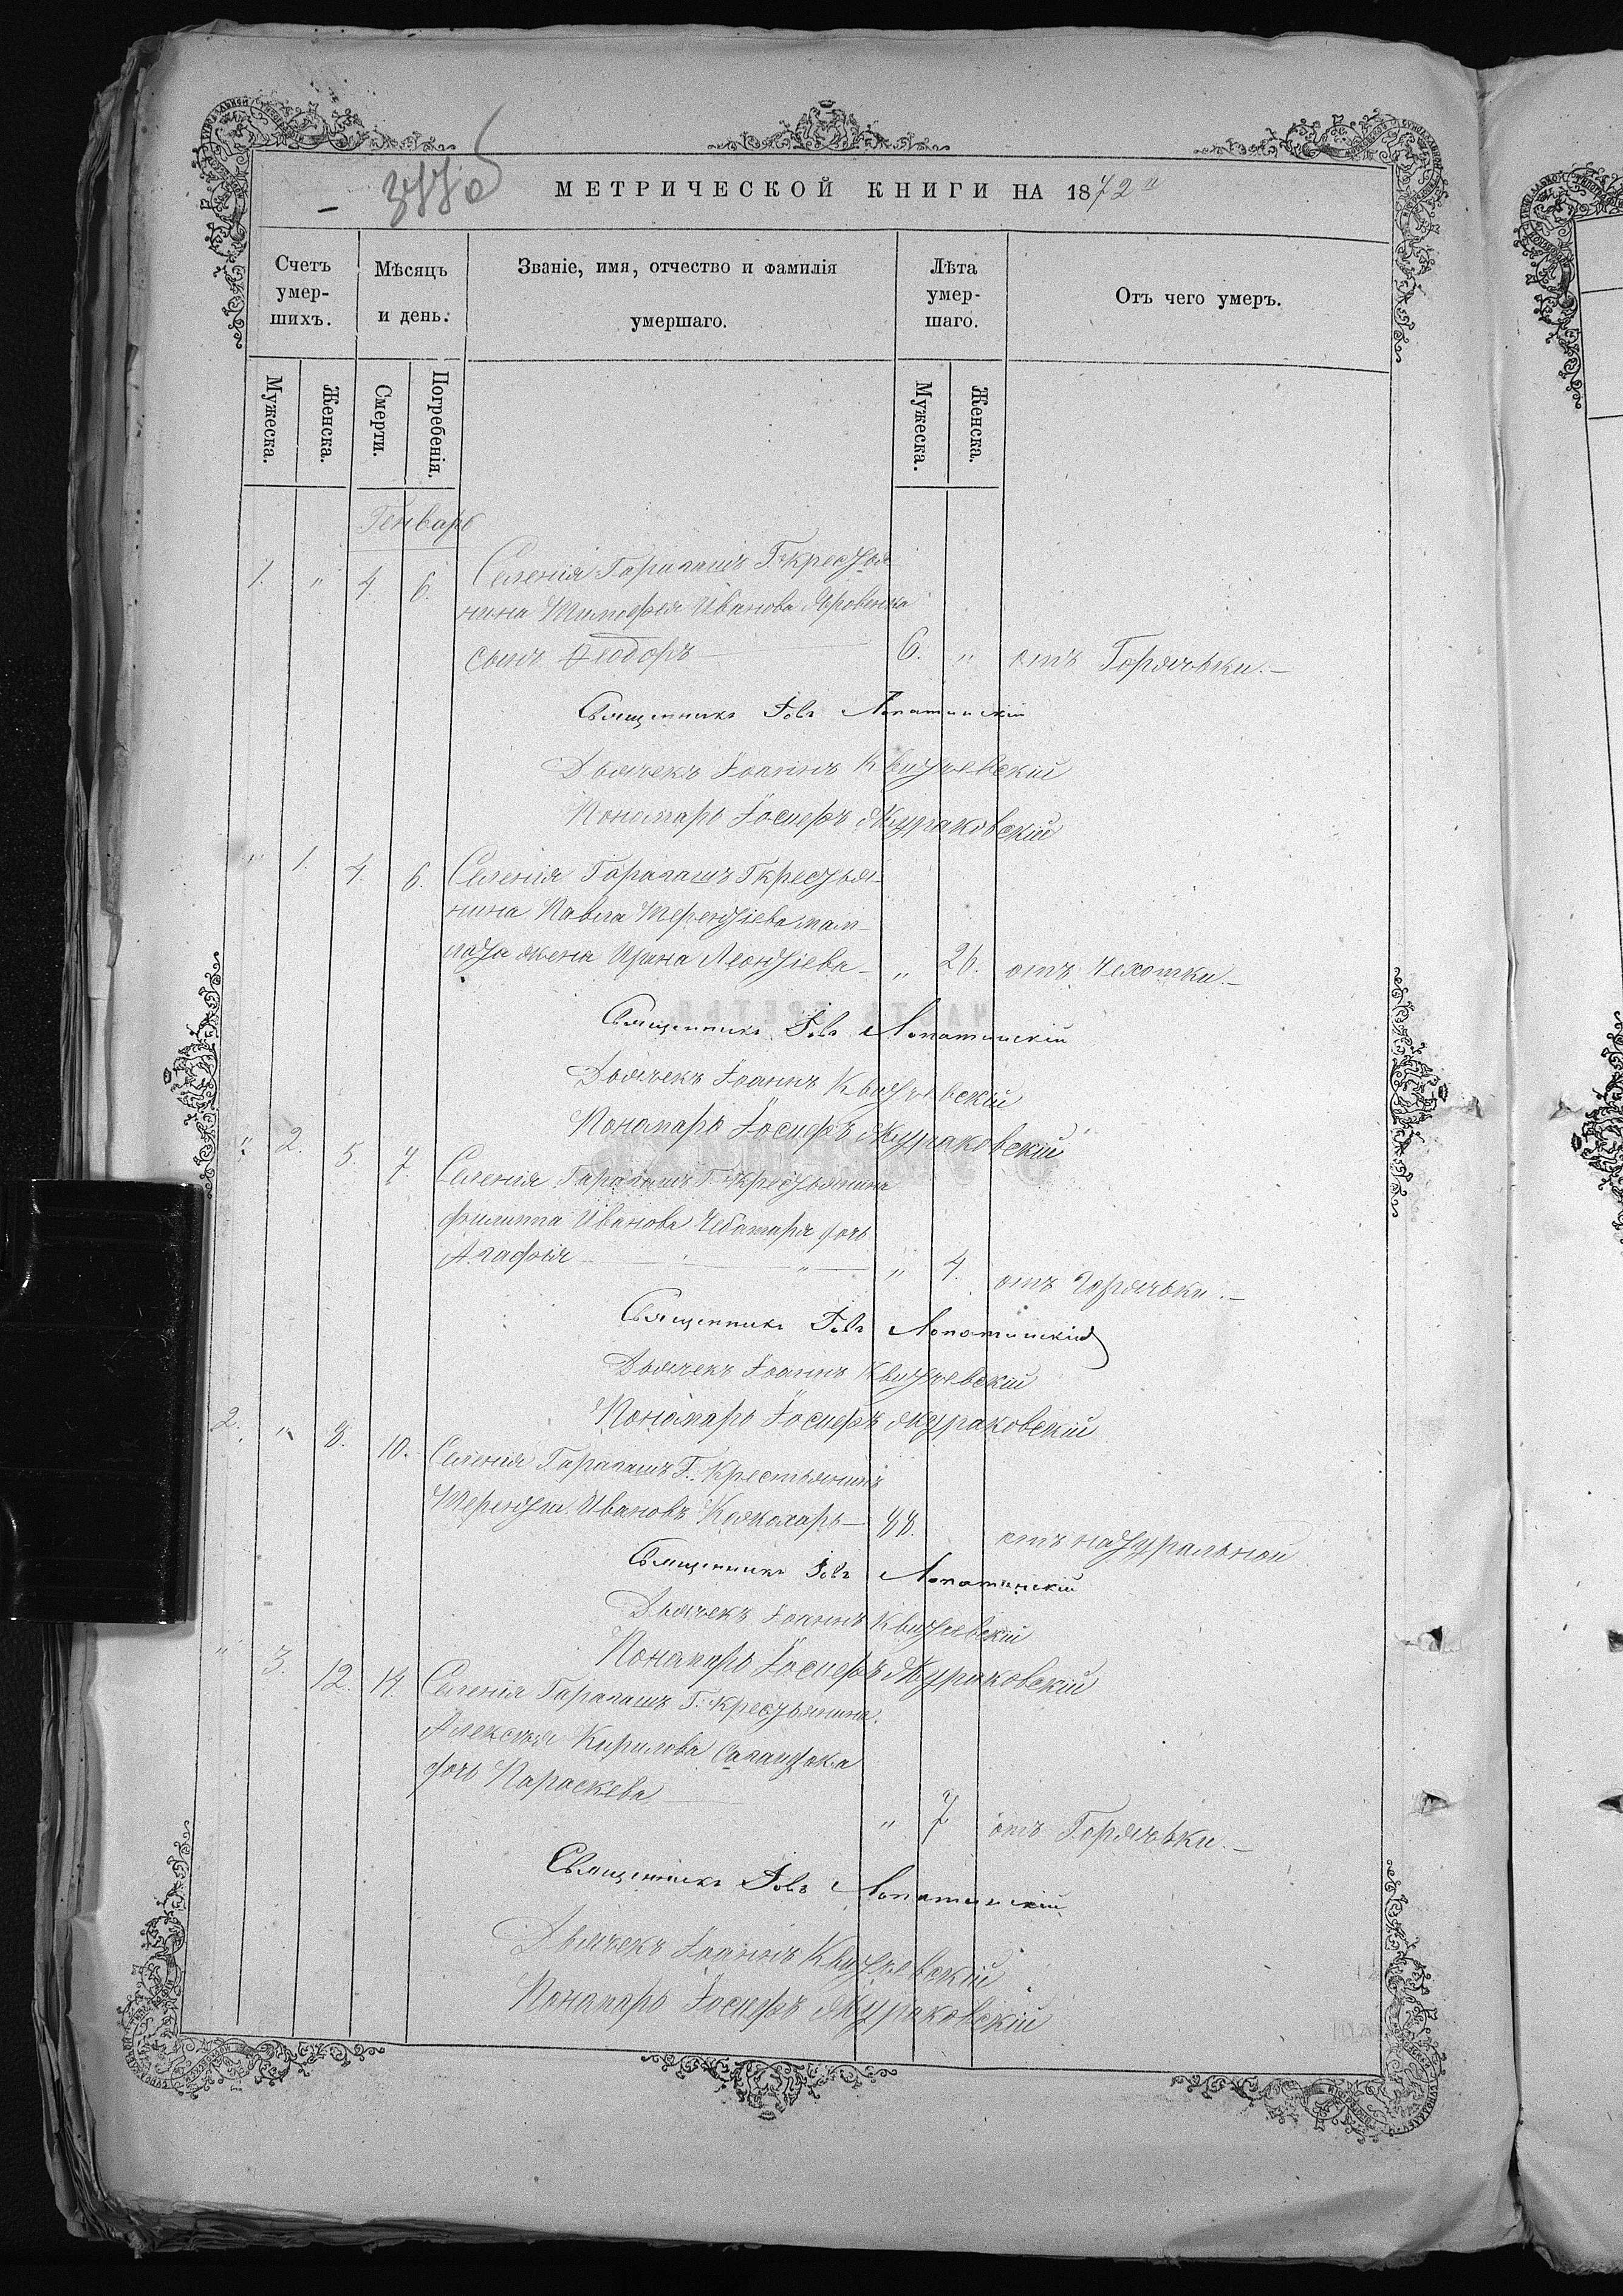 МЕТРИЧЕСКОЙ КНИГИ НА 1872
Счетъ умер-шихъ.
Мѣсяцъ и день.
Званіе, имя, отчество и фамилія умершаго.
Лѣта умер-шаго.
Отъ чего умеръ.
Мужеска.
Женска.
Смерти.
Погребенія.
Мужеска.
Женска.
Генварь
1. " 4. 6. Селенія Гарагашъ Г. крестья
нина Тимофея Иванова Яровенка
сынъ Ѳеодоръ 6. " отъ Горячьки.
Священникъ Іовъ Лопатинскій
Дьячекъ Іоаннъ Квитчевскій
Пономарь Іосифъ Жураковскій
" 1. 4. 6. Селенія Гарагашъ Г крестья-
нина Павла Терентіева
жена Ирина Леонтіева " 26. отъ Чехотки.
Священникъ Іовъ Лопатинскій
Дьячекъ Іоаннъ Квитчевскій
Пономарь Іосифъ Жураковскій
" 2. 5. 7. Селенія Гарагашъ Г. крестьянина
Филиппа Иванова Чеботаря дочь
Агафія " 4. отъ Горячьки.
Священникъ Іовъ Лопатинскій
Дьячекъ Іоаннъ Квитчевскій
Пономарь Іосифъ Жураковскій
2. " 8. 10. Селенія Гарагашъ Г. Крестьянинъ
Терентій Ивановъ 88. отъ натуральной
Священникъ Іовъ Лопатинскій
Дьячекъ Іоаннъ Квитчевскій
Пономарь Іосифъ Жураковскій
" 3. 12. 14. Селенія Гарагашъ Г. крестьянина
Алексѣя Кирилова
дочь Параскева " 7 отъ Горячьки.
Священникъ Іовъ Лопатинскій
Дьячекъ Іоаннъ Квитчевскій
Пономарь Іосифъ Жураковскій